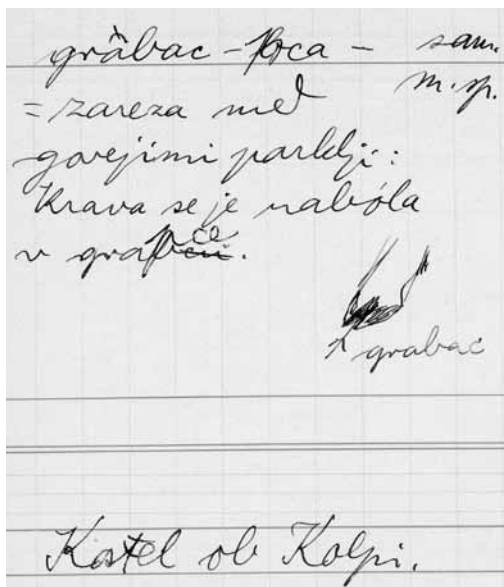 grȁbac -pca - sam.
m. sp.
= zareza med
govejimi parklji:
Krava se je nabóla
v grapce.
grabac
Kostel ob Kolpi.